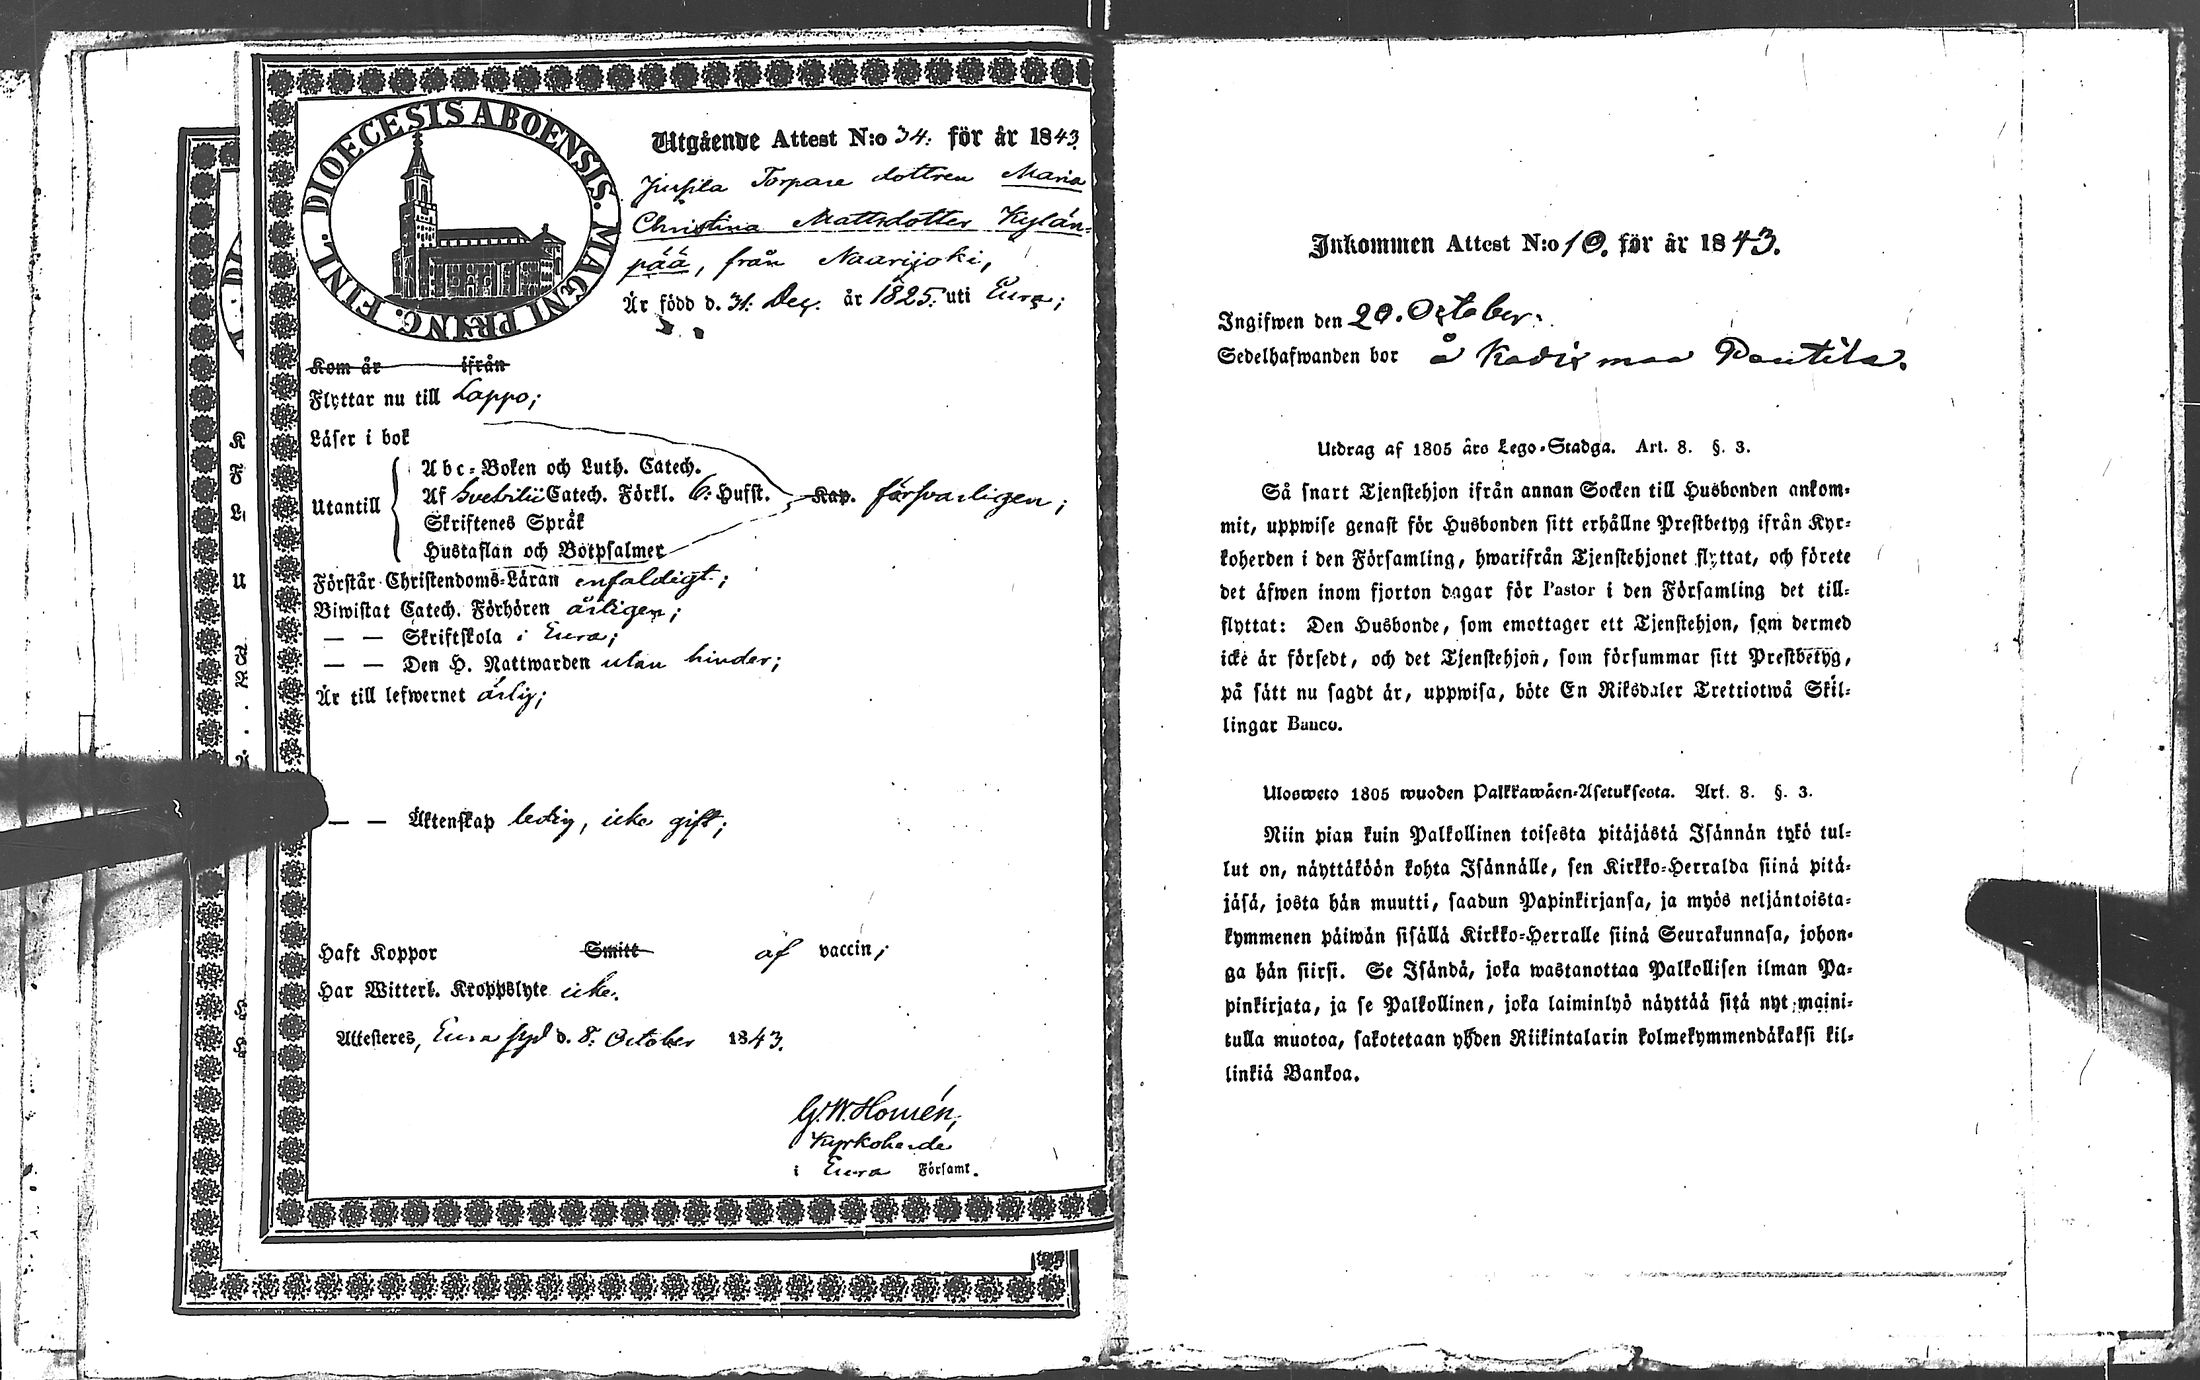 DIOECESIS ABOENSIS. MAGNI PRINC. FINL.
Utgående Attest N:o 34. för år 1843.
Torpare dottren Maria
Christina Mattsdotter Kylän-
pää, från Naarijoki,
Är född d. 31. Dec. år 1825. uti Eura;
Kom år ifrån
Flyttar nu till Lappo;
Läser i bok
Utantill
Abc-Boken och Luth. Catech.
Af Svebilii Catech. Förkl. 6: Hufst. Kap. försvarligen;
Skriftenes Språk
Hustaflan och Botpsalmer
Förstår Christendoms-Läran enfaldigt;
Biwistat Catech. Förhören årligen;
— — Skriftskola i Eura;
— — Den H. Nattwarden utan hinder;
Är till lefwernet ärlig;
— — Äktenskap ledig, icke gift;
Haft Koppor Smitt af vaccin;
Har Witterl. Kroppslyte icke.
Attesteres, Eura d. 8. October 1843.
G. W. Homén,
Kyrkoherde
i Eura Församl.
Inkommen Attest N:o 10. för år 1843.
Ingifwen den 20. October.
Sedelhafwanden bor å Pantila.
Utdrag af 1805 års Lego-Stadga. Art. 8. §. 3.
Så snart Tjenstehjon ifrån annan Socken till Husbonden ankom-
mit, uppwise genast för Husbonden sitt erhållne Prestbetyg ifrån Kyr-
koherden i den Församling, hwarifrån Tjenstehjonet flyttat, och förete
det äfwen inom fjorton dagar för Pastor i den Församling det till-
flyttat: Den Husbonde, som emottager ett Tjenstehjon, som dermed
icke är försedt, och det Tjenstehjon, som försummar sitt Prestbetyg,
på sätt nu sagdt är, uppwisa, böte En Riksdaler Trettiotwå Skil-
lingar Banco.
Ulosweto 1805 wuoden Palkkawäen-Asetuksesta. Art. 8. §. 3.
Niin pian kuin Palkollinen toisesta pitäjästä Isännän tykö tul-
lut on, näyttäköön kohta Isännälle, sen Kirkko-Herralda siinä pitä-
jäsä, josta hän muutti, saadun Papinkirjansa, ja myös neljäntoista-
kymmenen päiwän sisällä Kirkko-Herralle siinä Seurakunnasa, johon-
ga hän siirsi. Se Isändä, joka wastanottaa Palkollisen ilman Pa-
pinkirjata, ja se Palkollinen, joka laiminlyö näyttää sitä nyt maini-
tulla muotoa, sakotetaan yhden Riikintalarin kolmekymmendäkaksi kil-
linkiä Bankoa.